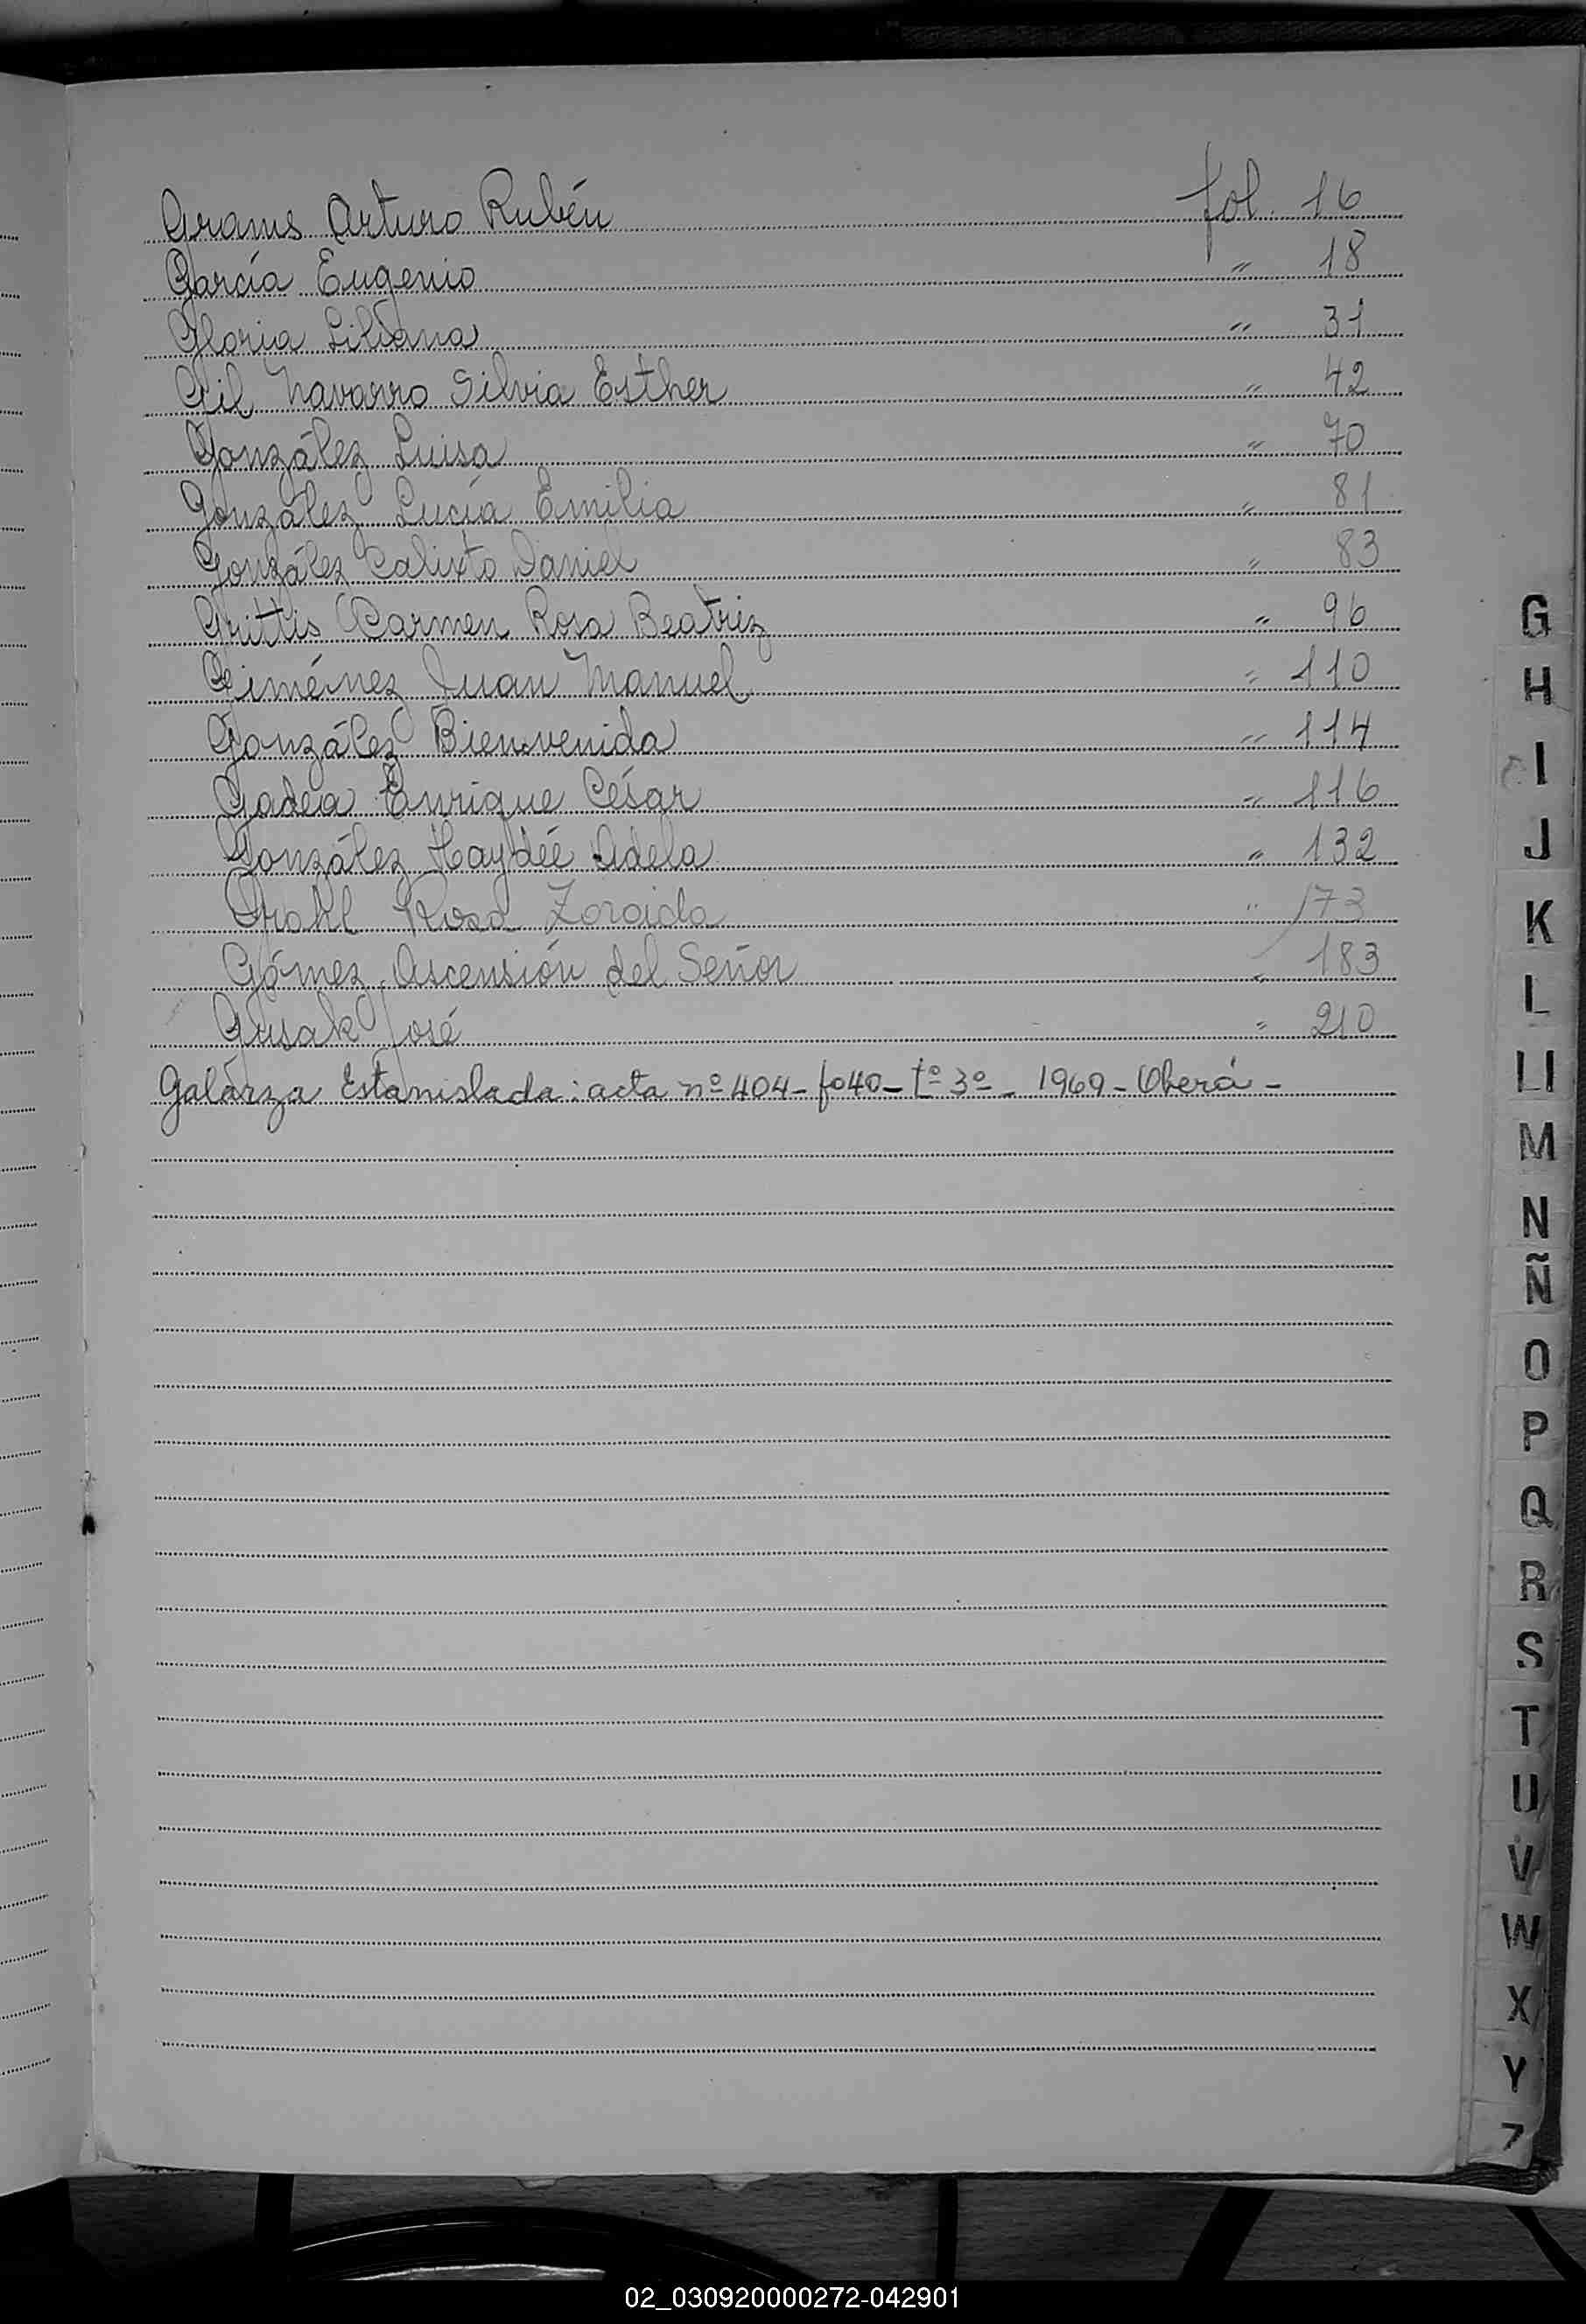 Grams Arturo Rubén fol. 16
García Eugenio " 18
Gloria Liliana " 31
Gil Navarro Silvia Esther " 42
González Luisa " 70
González Lucía Emilia " 81
González Calixto Daniel " 83
Grittis Carmen Rosa Beatriz " 96
Giménez Juan Manuel " 110
González Bienvenida " 114
Gadea Enrique César " 116
González Haydée Adela " 132
Grahl Rosa Zoraida " 173
Gómez Ascensión del Señor " 183
Gusak José " 210
Galarza Estanislada: acta nº 404 - fº 40 - tº 3º - 1969 - Oberá -
G
H
I
J
K
L
Ll
M
N
Ñ
O
P
Q
R
S
T
U
V
W
X
Y
Z
02_030920000272-042901